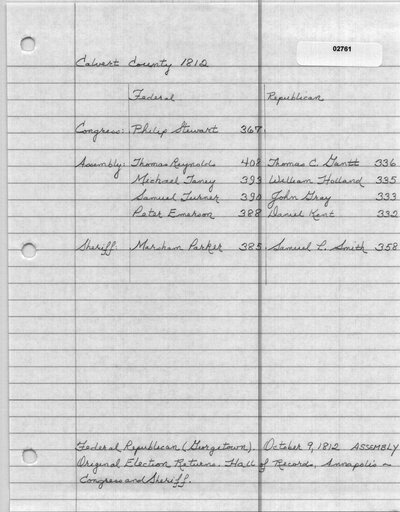 02761
Calvert County 1812
Federal Republican
Congress: Philip Stewart 367
Assembly: Thomas Reynolds 408 Thomas C. Gantt 336
Michael Taney 393 William Holland 335
Samuel Turner 390 John Gray 333
Peter Emerson 388 Daniel Kent 332
Sheriff: Marsham Parker 385 Samuel L. Smith 358
Federal Republican (Georgetown). October 9, 1812 ASSEMBLY
Original Election Returns. Hall of Records, Annapolis ~
Congress and Sheriff.